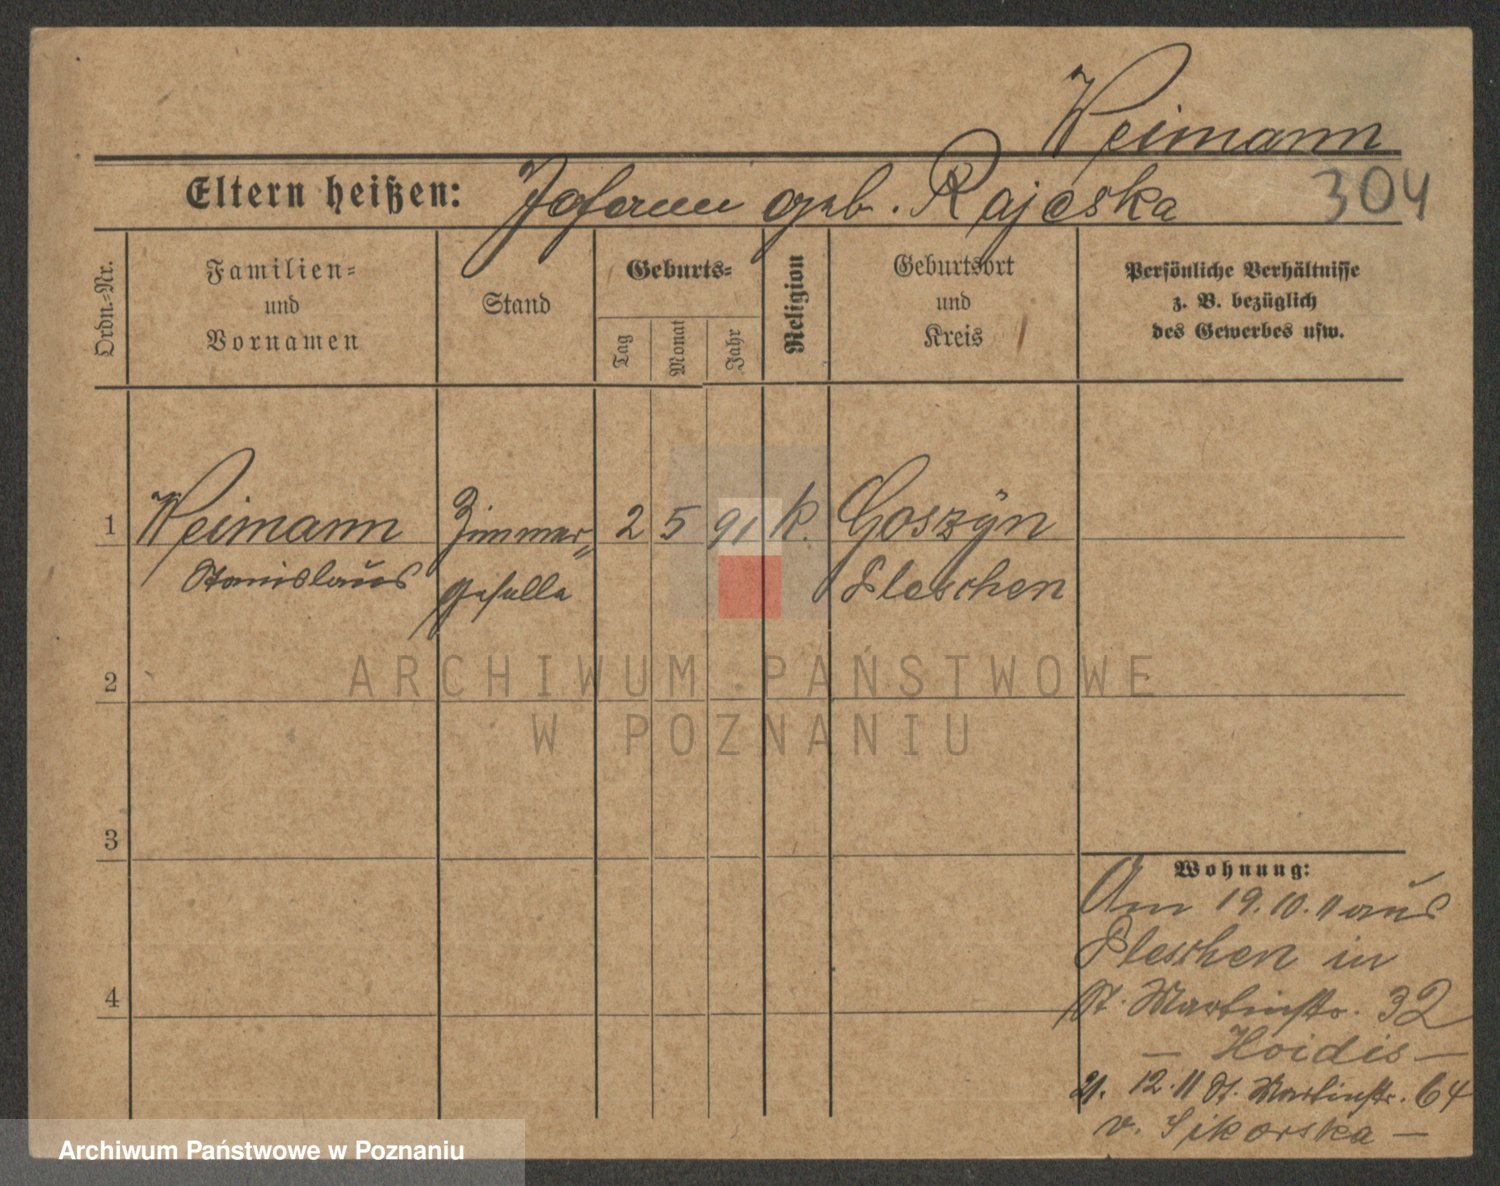 Weimann
Eltern heißen: Johann geb. Rajeska 304
Ordn.-Nr.
Familien-
und
Vornamen
Stand
Geburts-
Tag
Monat
Jahr
Religion
Geburtsort
und
Kreis
Persönliche Verhältnisse
z. B. bezüglich
des Gewerbes usw.
1 Weimann Zimmer- 2 5 91 k. Goszyn
Stanislaus geselle Pleschen
2
3
4
Wohnung:
Am 19.10.11 aus
Pleschen in
St. Martinstr. 32
— Hoidis —
21. 12. 11 St. Martinstr. 64
v. Sikorska —
ARCHIWUM PAŃSTWOWE
W POZNANIU
Archiwum Państwowe w Poznaniu